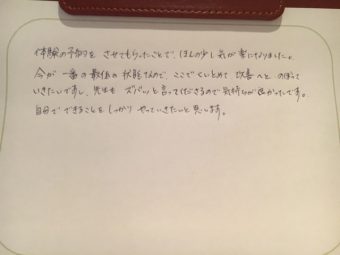 体験の予約を させてもらったことで、ほんの少し気が楽になりました。
今が 一番の最低の状態なので、ここで とどめて 改善へと のぼって
いきたいですし、先生も ズバッと言ってくださるので気持ちが良かったです。
自分で できることを しっかり やっていきたいと思います。